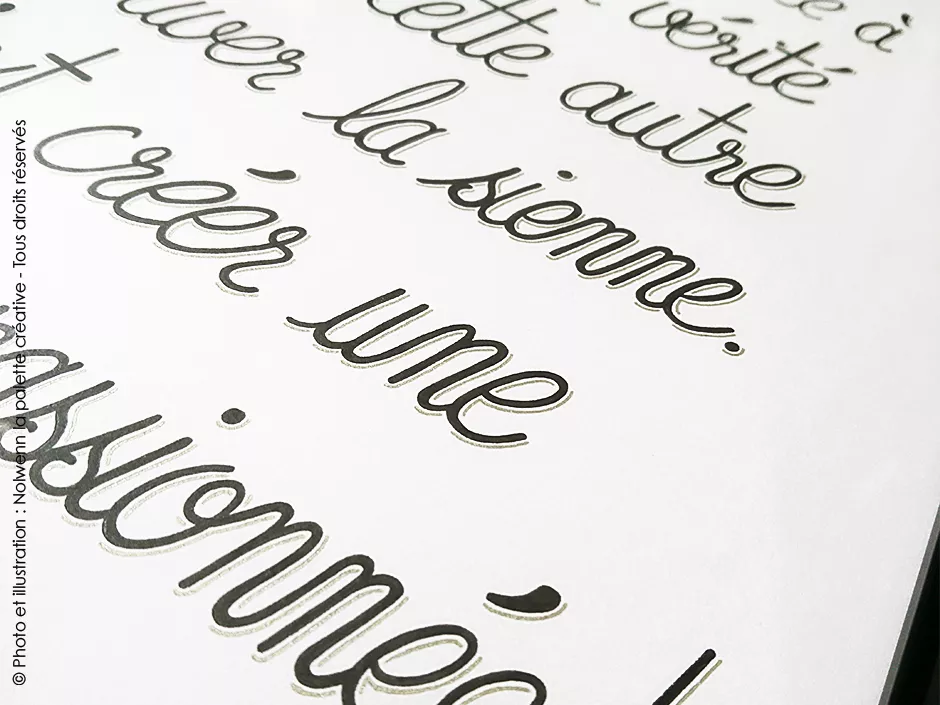 à
vérité
cette autre
la sienne.
créer une
passionnée
© Photo et illustration : Nolwenn la palette créative - Tous droits réservés